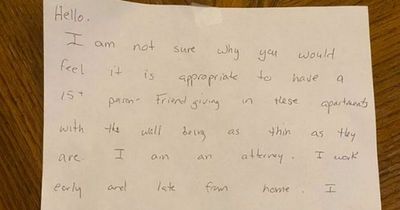 Hello.
I am not sure why you would
feel it is appropriate to have a
15+ person Friendgiving in these apartments
with the wall being as thin as they
are. I am an attorney. I work
early and late from home. I